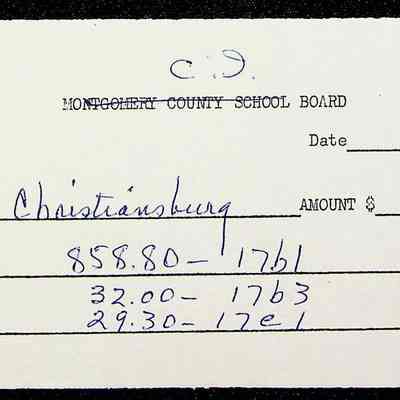 C.I.
MONTGOMERY COUNTY SCHOOL BOARD
Date
Christiansburg AMOUNT $
858.80 - 17b1
32.00 - 17b3
29.30 - 17e1